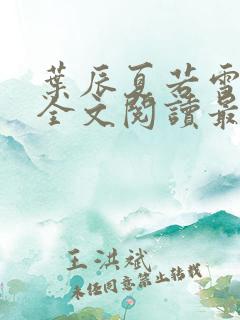 葉辰夏若雪
全文閱讀最
王洪斌
未经同意禁止转载